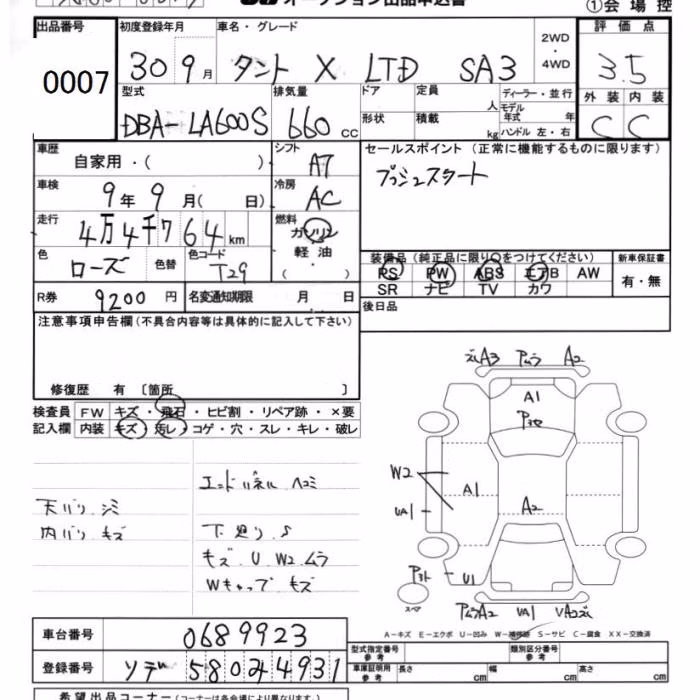 オークション出品申込書
①会場控
出品番号 初度登録年月 車名・グレード 2WD・4WD 評価点
0007 30 9月 タント X LTD SA3 3.5
型式 排気量 ドア 定員 人 ディーラー・並行 外装 内装
DBA-LA600S 660 cc 形状 積載 kg モデル年式 年 ハンドル 左・右 C C
車歴 シフト セールスポイント (正常に機能するものに限ります)
自家用・( ) AT プッシュスタート
車検 9年 9月( 日) 冷房 AC
走行 4万4千764km 燃料 ガソリン 軽油 ( ・ )
色 ローズ 色替 色コード T29
装備品 (純正品に限り〇をつけてください) 新車保証書
PS PW ABS エアB AW 有・無
SR ナビ TV カワ
R券 9200円 名変通知期限 月 日 後日品
注意事項申告欄(不具合内容等は具体的に記入して下さい)
修復歴 有 〔箇所 〕
検査員 FW キズ・飛石・ヒビ割・リペア跡・×要
記入欄 内装 キズ・汚レ・コゲ・穴・スレ・キレ・破レ
エンドパネル ヘコミ
天バリ シミ
内バリ キズ 下廻り S
キズ U W2 ムラ
Wキャップ キズ
A3 Pムラ A2
A1
W2
A1
UA1 A2
U1
スペア
PムラA2 UA1
A-キズ E-エクボ U-凹み W-補修跡 S-サビ C-腐食 XX-交換済
車台番号 0689923
登録番号 ソデ 580 4931
型式指定番号 参考 類別区分番号 参考
車庫証明用 参考 長さ cm 幅 cm 高さ cm
希望出品コーナー(コーナーは各会場により異なります。)